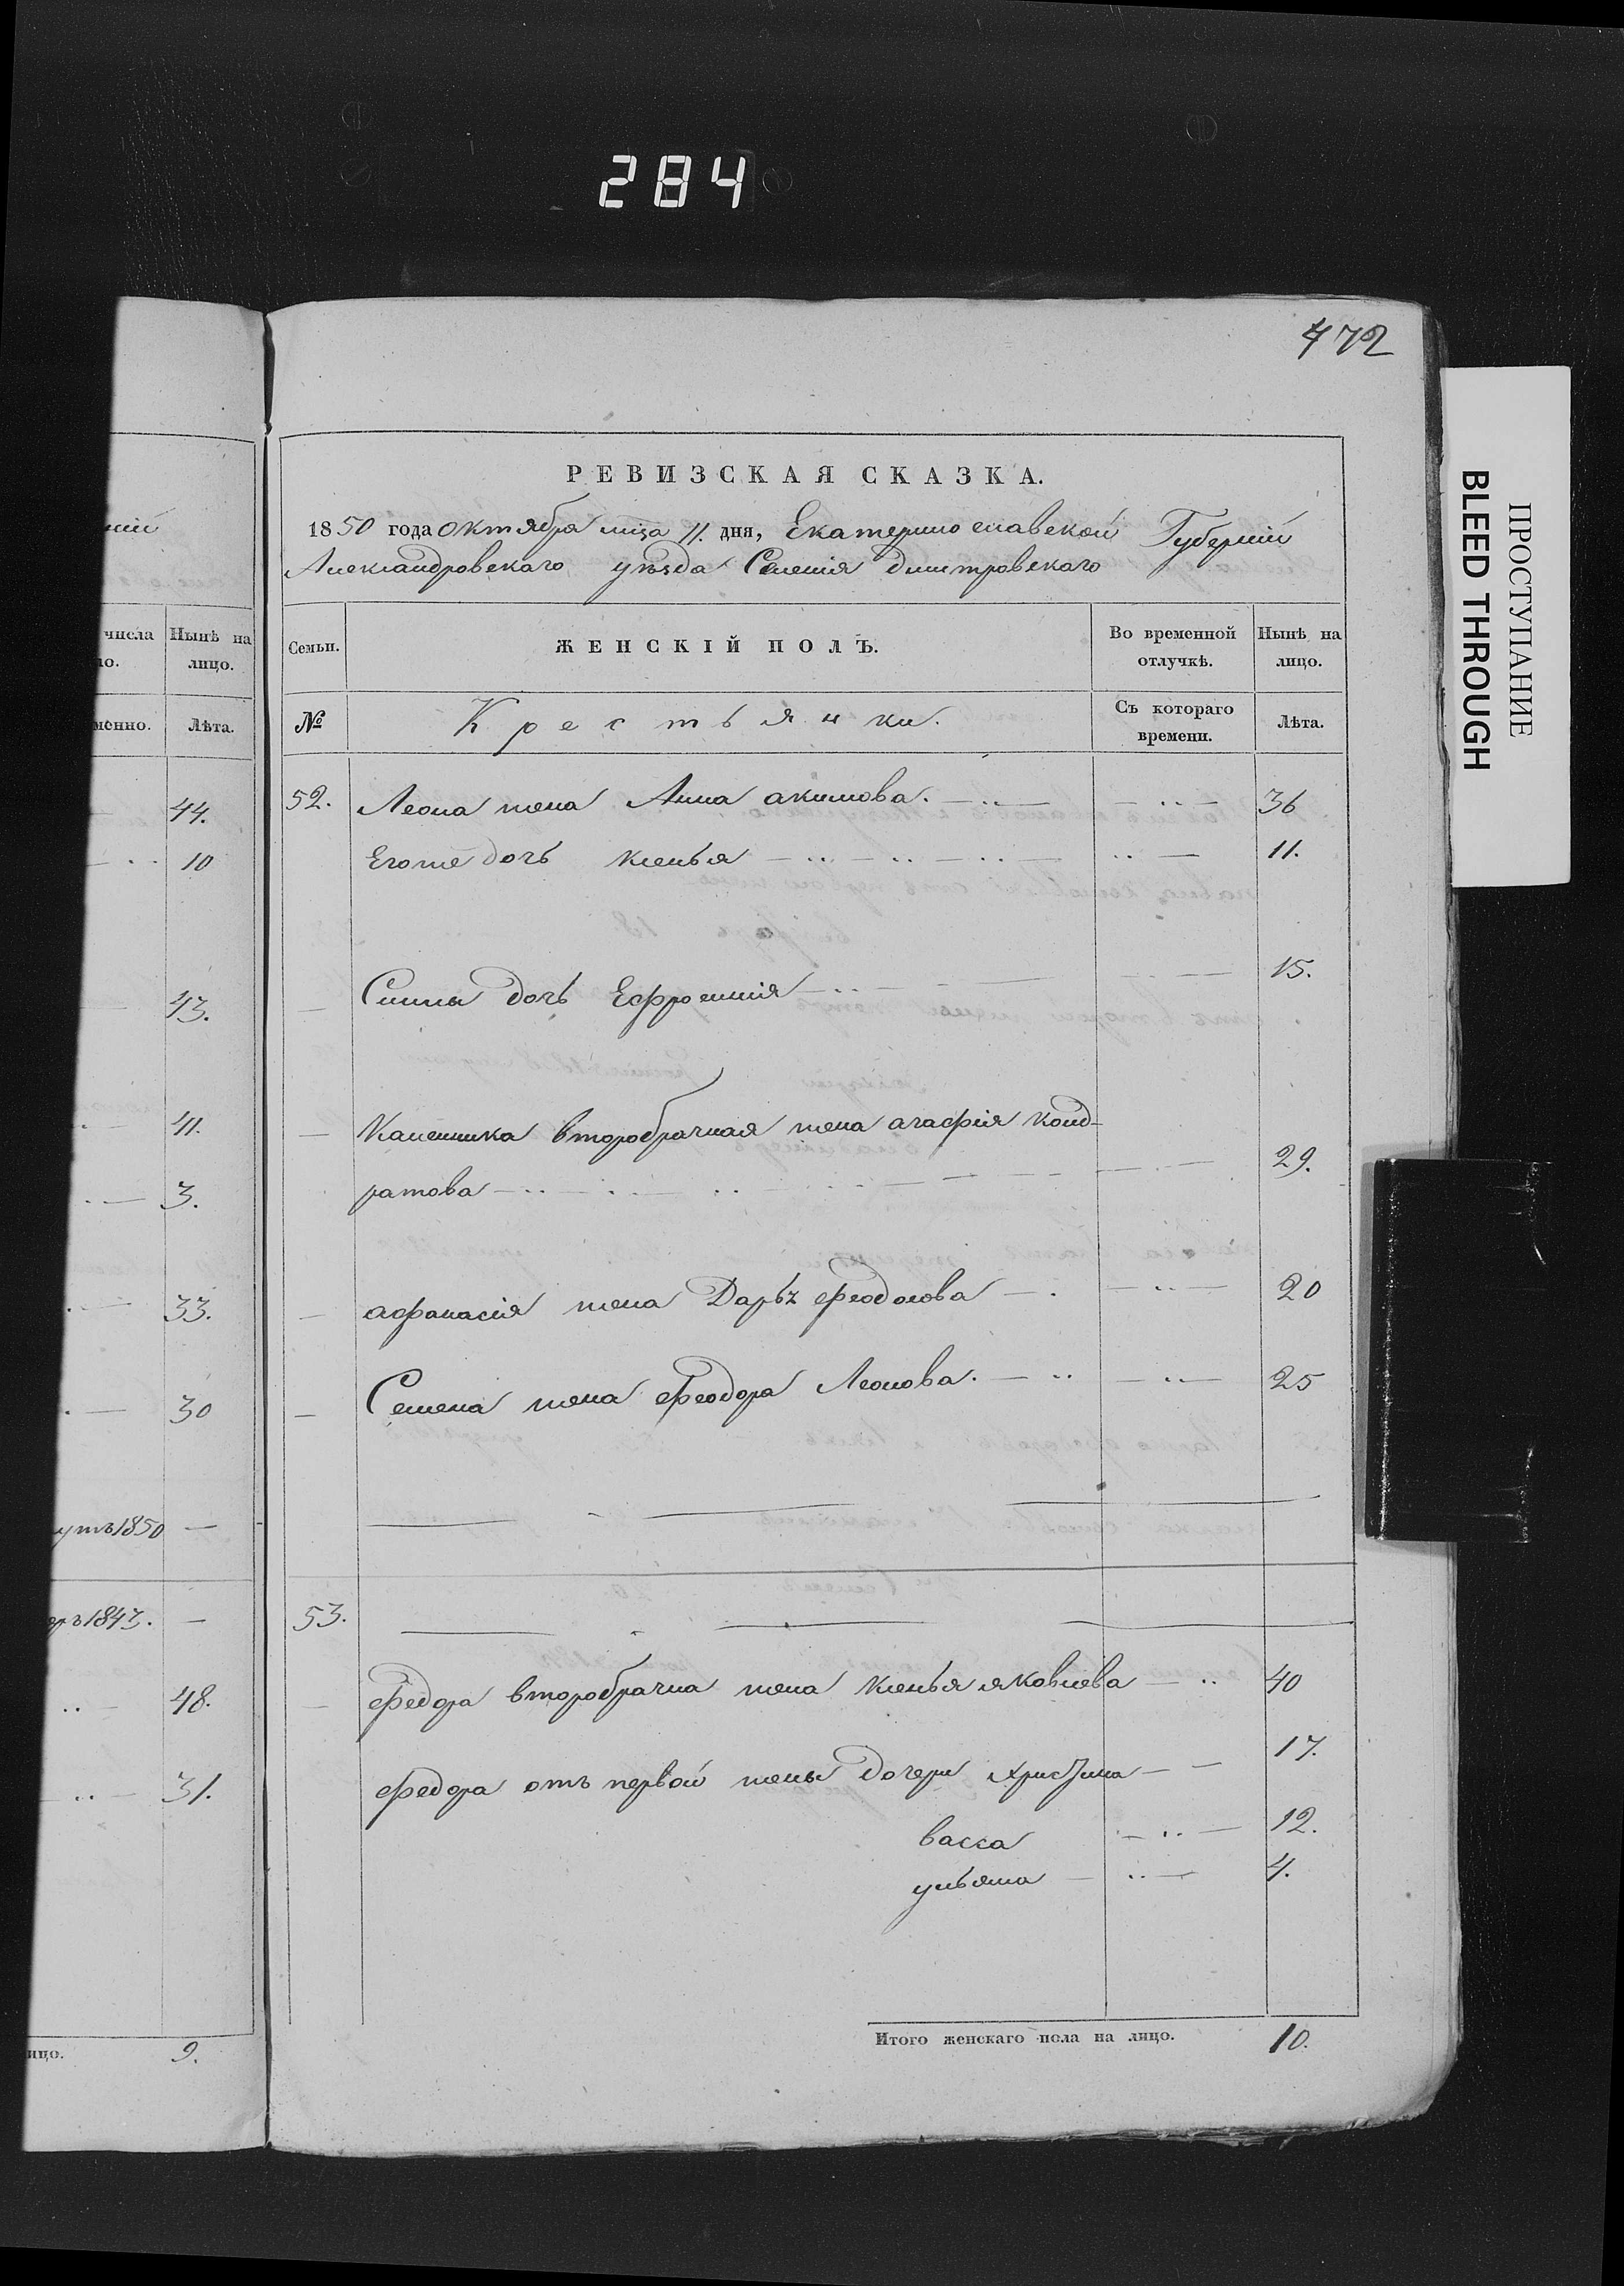 284
472
ній
числа
ло.
Нынѣ на
лицо.
менно.
Лѣта.
44.
10
43.
41.
3.
33.
30
утъ 1850 —
ръ 1843. —
48.
31.
ицо. 9.
РЕВИЗСКАЯ СКАЗКА.
1850 года октября мца 11. дня, Екатеринославской Губерніи
Александровскаго уѣзда Селенія Дмитровскаго
Семьи.
ЖЕНСКІЙ ПОЛЪ.
Во временной
отлучкѣ.
Нынѣ на
лицо.
№
Крестьянки.
Съ котораго
времени.
Лѣта.
52. Леона жена Анна акимова. 36
Егоже дочь ксенья 11.
— дочь Ефросинія 15.
— второбрачная жена агафія конд-
ратова 29.
— афанасія жена Дарья федотова 20
— Семена жена Феодора Леонова. 25
53.
— федора второбрачна жена ксенья яковлева 40
федора отъ первой жены дочери христина 17.
васса 12.
ульяна 4.
Итого женскаго пола на лицо. 10.
ПРОСТУПАНИЕ
BLEED THROUGH